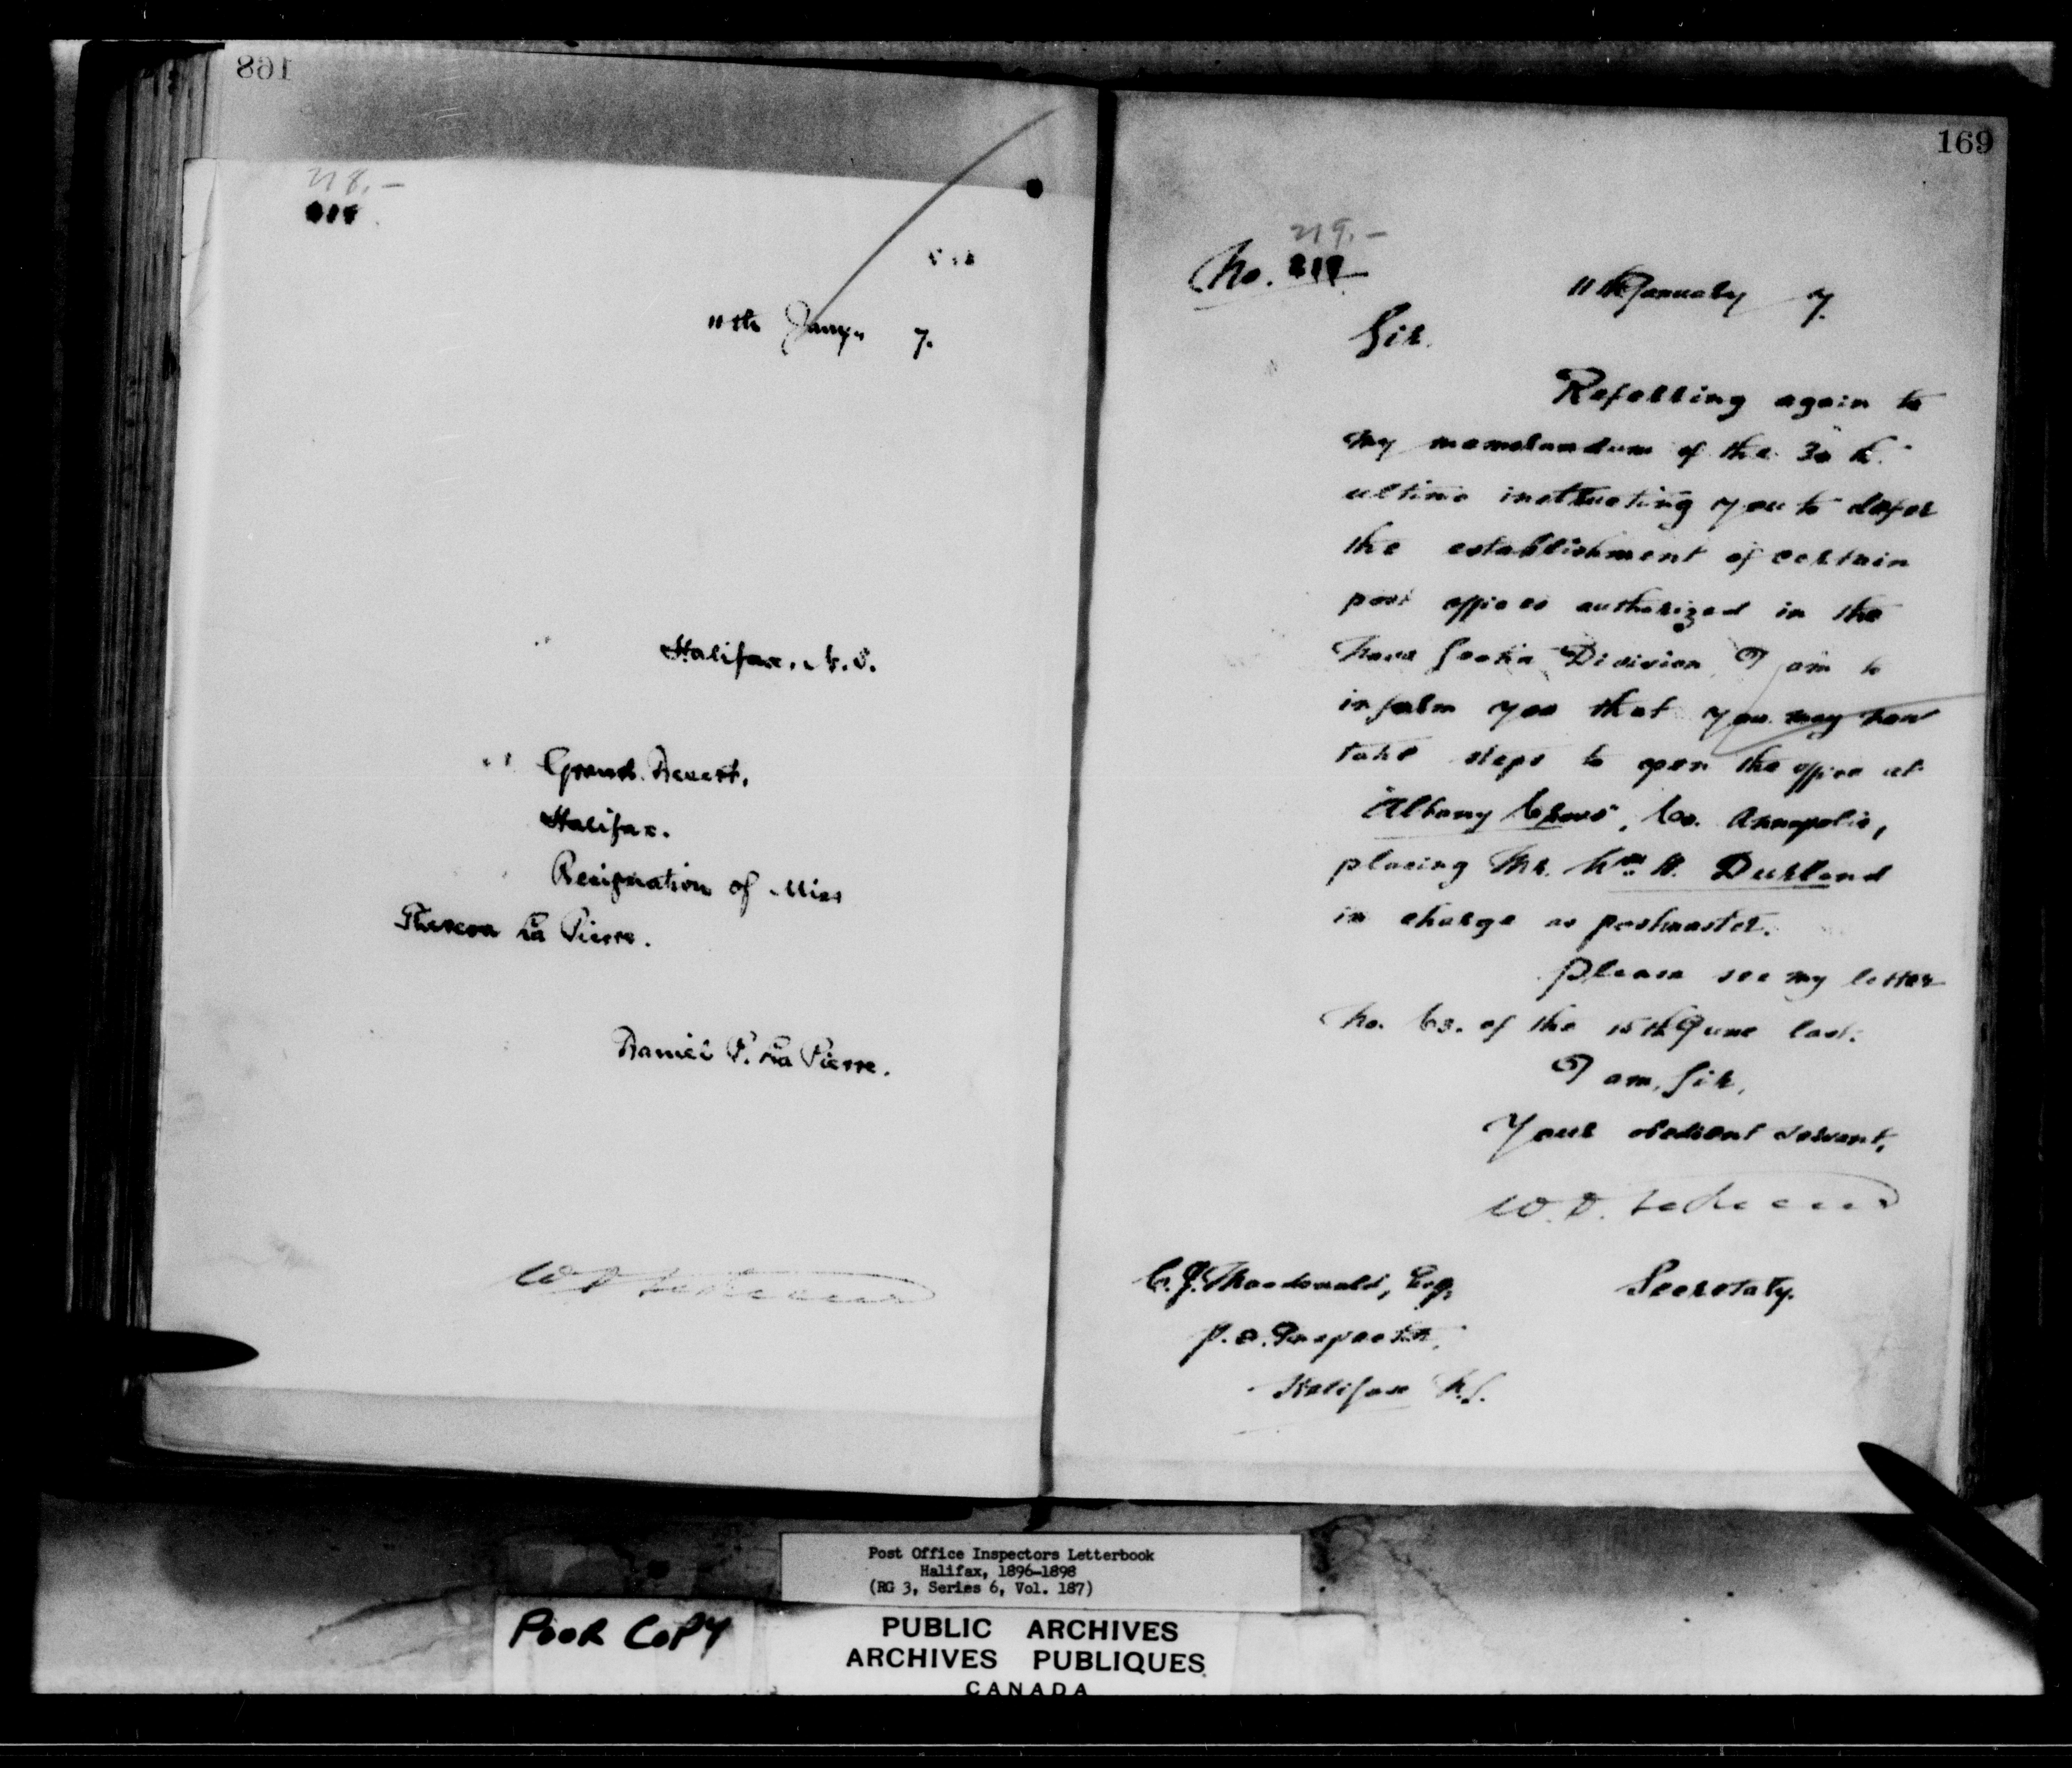 168
218.-
11th Jany. 7.
Halifax, N.S.
Grand Desert,
Halifax.
Resignation of Miss
Theresa La Pierre.
Daniel P. La Pierre.
169
219.-
No.
11th January 7.
Sir.
Referring again to
my memorandum of the 30th
ultimo instructing you to defer
the establishment of certain
post offices authorized in the
Nova Scotia Division, I am to
inform you that you may now
take steps to open the office at
Albany Cross, Co. Annapolis,
placing Mr. Wm. H. Durland
in charge as postmaster.
Please see my letter
No. 63. of the 15th June last.
I am, Sir,
Your obedient servant,
W.D.
Secretary.
C.J. Macdonald, Esq,
P.O. Inspector,
Halifax N.S.
Post Office Inspectors Letterbook
Halifax, 1896-1898
(RG 3, Series 6, Vol. 187)
POOR COPY
PUBLIC ARCHIVES
ARCHIVES PUBLIQUES
CANADA